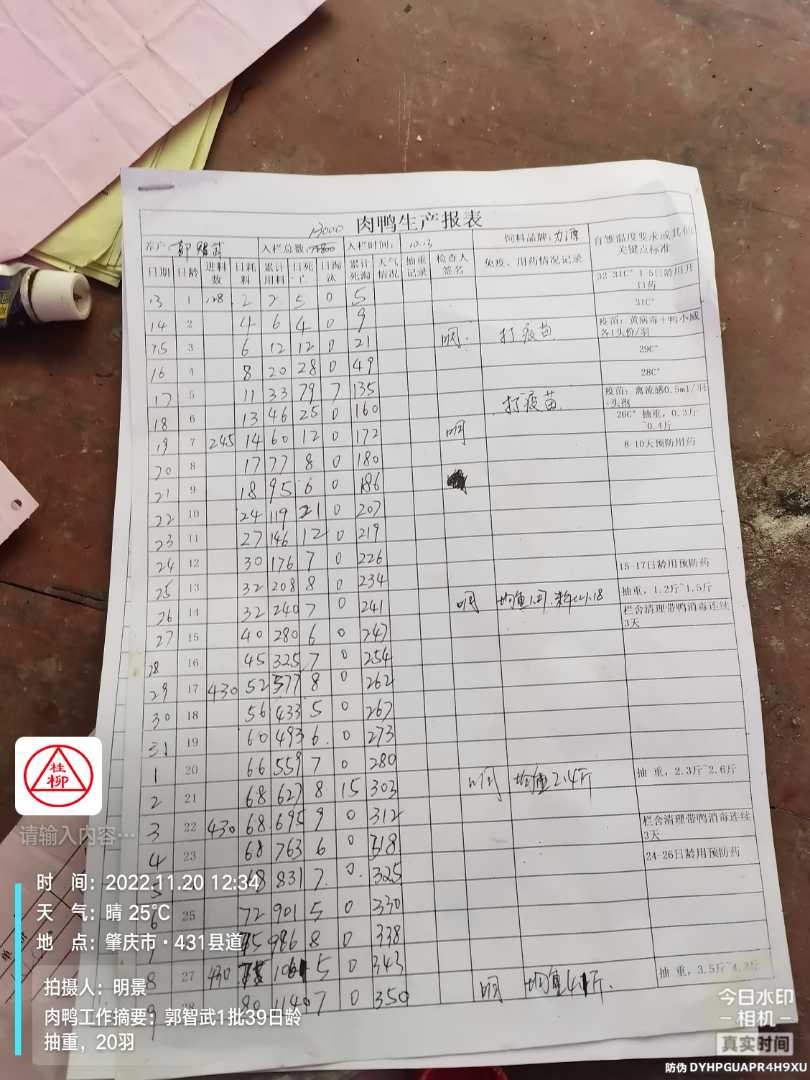 肉鸭生产报表
13000
客户：郭智武 入栏总数： 入栏时间：10.13 饲料品牌：力源 育雏温度要求或其他关键点标准
日期 日龄 进料数 日耗料 累计用料 日死亡 日淘汰 累计死淘 天气情况 抽重记录 检查人签名 免疫、用药情况记录
32-31C° 1-5日龄用开口药
13 1 128 2 2 5 0 5 31C°
14 2 4 6 4 0 9 疫苗：黄病毒+鸭小减各1头份/羽
15 3 6 12 12 0 21 明 打疫苗 29C°
16 4 8 20 28 0 49 28C°
17 5 11 33 79 7 135 打疫苗 疫苗：禽流感0.5ml/羽
18 6 13 46 25 0 160 26C° 抽重，0.3斤~0.4斤
19 7 245 14 60 12 0 172 明 8-10天预防用药
20 8 17 77 8 0 180
21 9 18 95 6 0 186
22 10 24 119 21 0 207
23 11 27 146 12 0 219
24 12 30 176 7 0 226 15-17日龄用预防药
25 13 32 208 8 0 234 抽重，1.2斤~1.5斤
26 14 32 240 7 0 241 明 均重 栏舍清理带鸭消毒连续3天
27 15 40 280 6 0 247
28 16 45 325 7 0 254
29 17 430 52 377 8 0 262
30 18 56 433 5 0 267
31 19 60 493 6 0 273
1 20 66 559 7 0 280
2 21 68 627 8 15 303 明 均重2.4斤 抽 重，2.3斤~2.6斤
3 22 430 68 695 9 0 312 栏舍清理带鸭消毒连续3天
4 23 68 763 6 0 318 24-26日龄用预防药
831 7 0 325
25 72 901 5 0 330
986 8 0 338
8 27 430 5 0 343
9 28 80 1140 7 0 350 明 均重4.1斤. 抽 重，3.5斤~4.2斤
桂柳
请输入内容…
时 间：2022.11.20 12:34
天 气：晴 25°C
地 点：肇庆市·431县道
拍摄人：明景
肉鸭工作摘要：郭智武1批39日龄
抽重，20羽
今日水印
-相机-
真实时间
防伪 DYHPGUAPR4H9XU